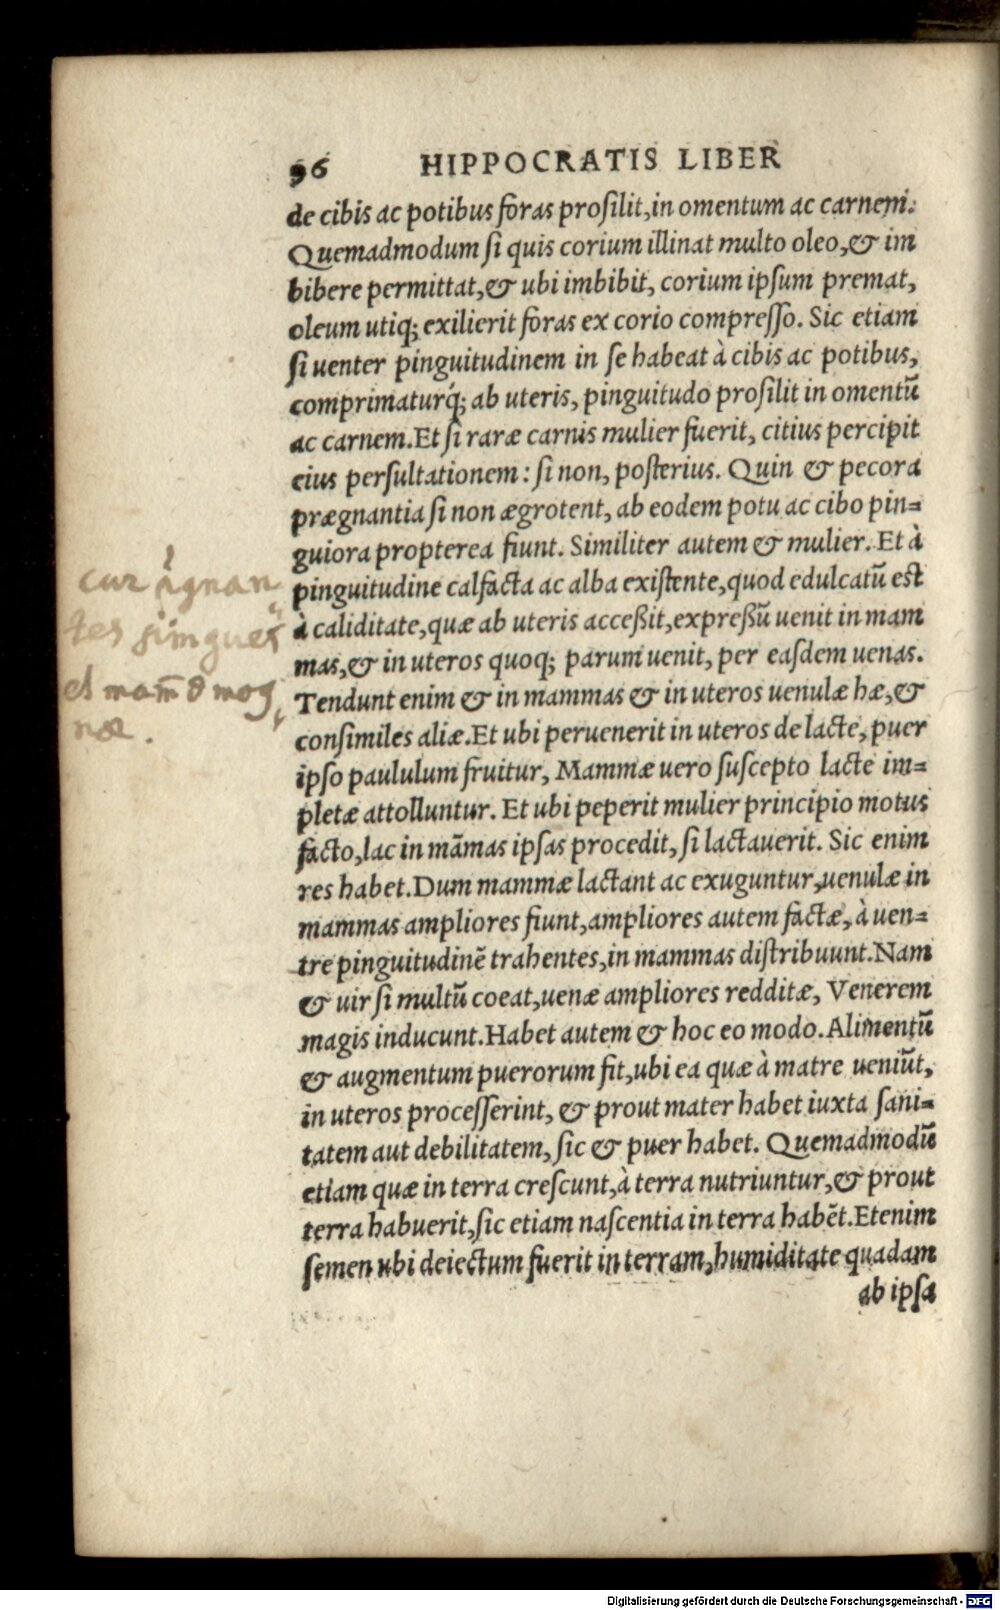 96 HIPPOCRATIS LIBER
de cibis ac potibus foras prosilit, in omentum ac carnem.
Quemadmodum si quis corium illinat multo oleo, & im
bibere permittat, & ubi imbibit, corium ipsum premat,
oleum utiq; exilierit foras ex corio compresso. Sic etiam
si uenter pinguitudinem in se habeat à cibis ac potibus,
comprimaturq́; ab uteris, pinguitudo prosilit in omentū
ac carnem. Et si raræ carnis mulier fuerit, citius percipit
eius persultationem: si non, posterius. Quin & pecora
prægnantia si non ægrotent, ab eodem potu ac cibo pin=
guiora propterea fiunt. Similiter autem & mulier. Et à
pinguitudine calfacta ac alba existente, quod edulcatū est
à caliditate, quæ ab uteris acceßit, expreßū uenit in mam
mas, & in uteros quoq; parum uenit, per easdem uenas.
Tendunt enim & in mammas & in uteros uenulæ hæ, &
consimiles aliæ. Et ubi peruenerit in uteros de lacte, puer
ipso paululum fruitur, Mammæ uero suscepto lacte im=
pletæ attolluntur. Et ubi peperit mulier principio motus
facto, lac in mãmas ipsas procedit, si lactauerit. Sic enim
res habet. Dum mammæ lactant ac exuguntur, uenulæ in
mammas ampliores fiunt, ampliores autem factæ, à uen=
tre pinguitudinē trahentes, in mammas distribuunt. Nam
& uir si multū coeat, uenæ ampliores redditæ, Venerem
magis inducunt. Habet autem & hoc eo modo. Alimentū
& augmentum puerorum fit, ubi ea quæ à matre ueniūt,
in uteros processerint, & prout mater habet iuxta sani=
tatem aut debilitatem, sic & puer habet. Quemadmodū
etiam quæ in terra crescunt, à terra nutriuntur, & prout
terra habuerit, sic etiam nascentia in terra habēt. Etenim
semen ubi deiectum fuerit in terram, humiditate quadam
ab ipsa
cur
et
Digitalisierung gefördert durch die Deutsche Forschungsgemeinschaft - DFG